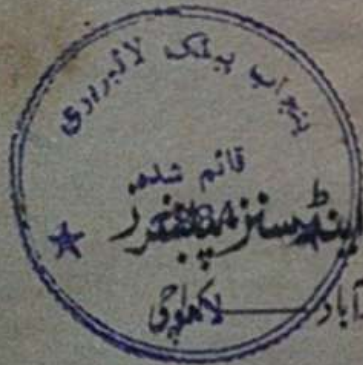 پنجاب پبلک لائبریری
قائم شدہ
اینڈ سنز پبلشرز
آباد